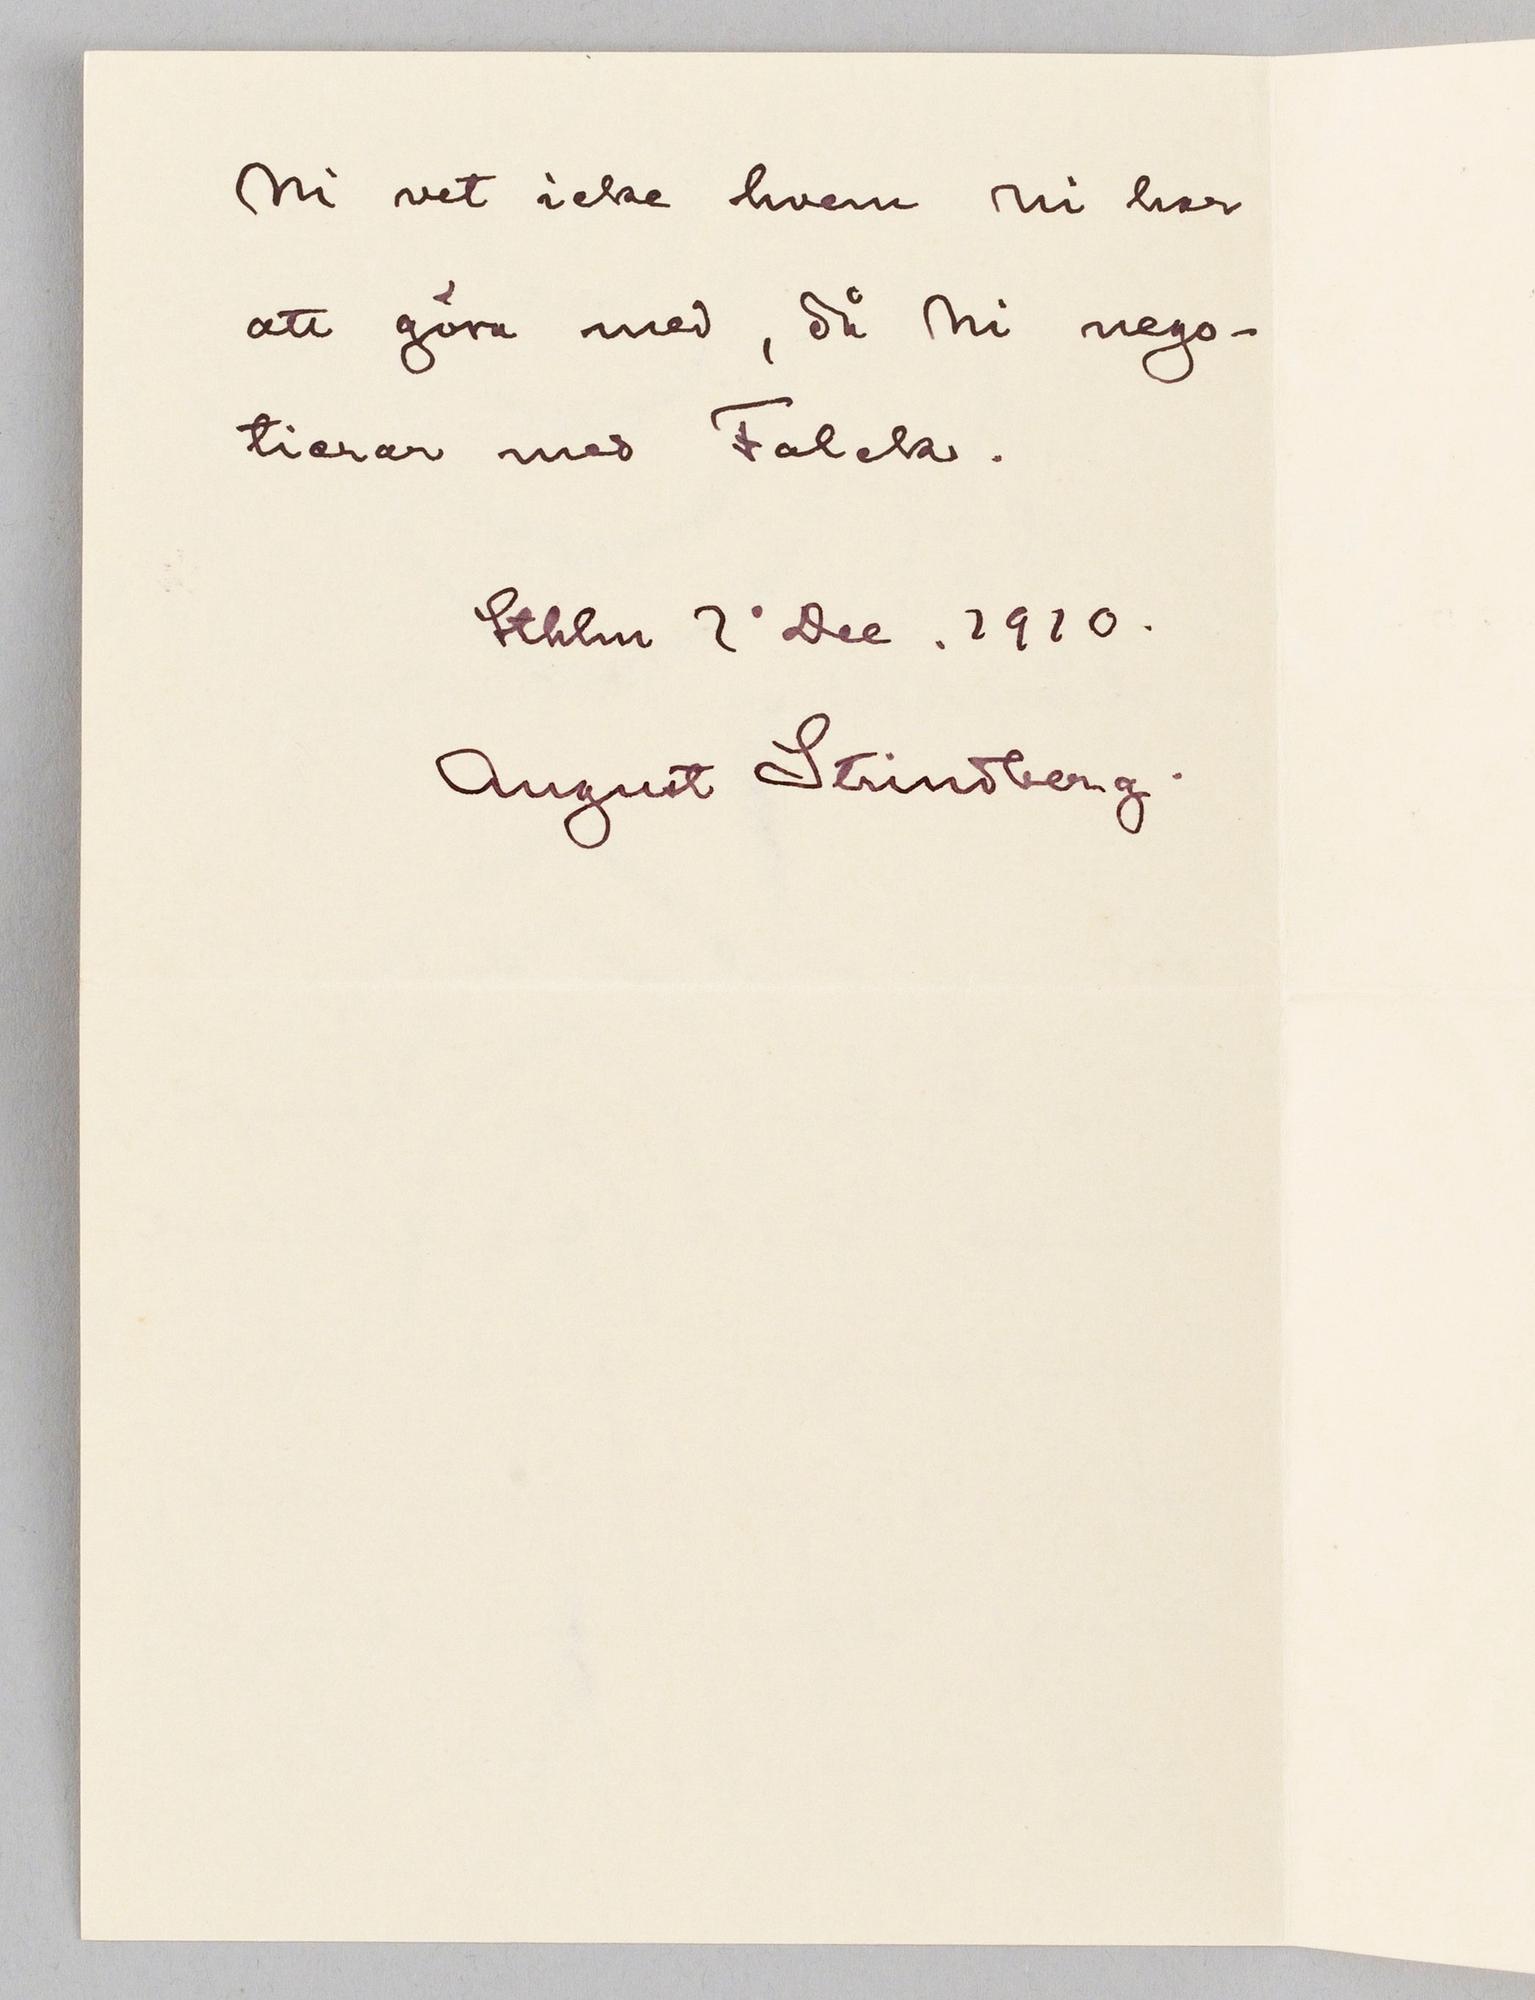 Ni vet icke hvem Ni har
att göra med, då Ni nego-
tierar med Falck.
Sthlm 1° Dec. 1910.
August Strindberg.